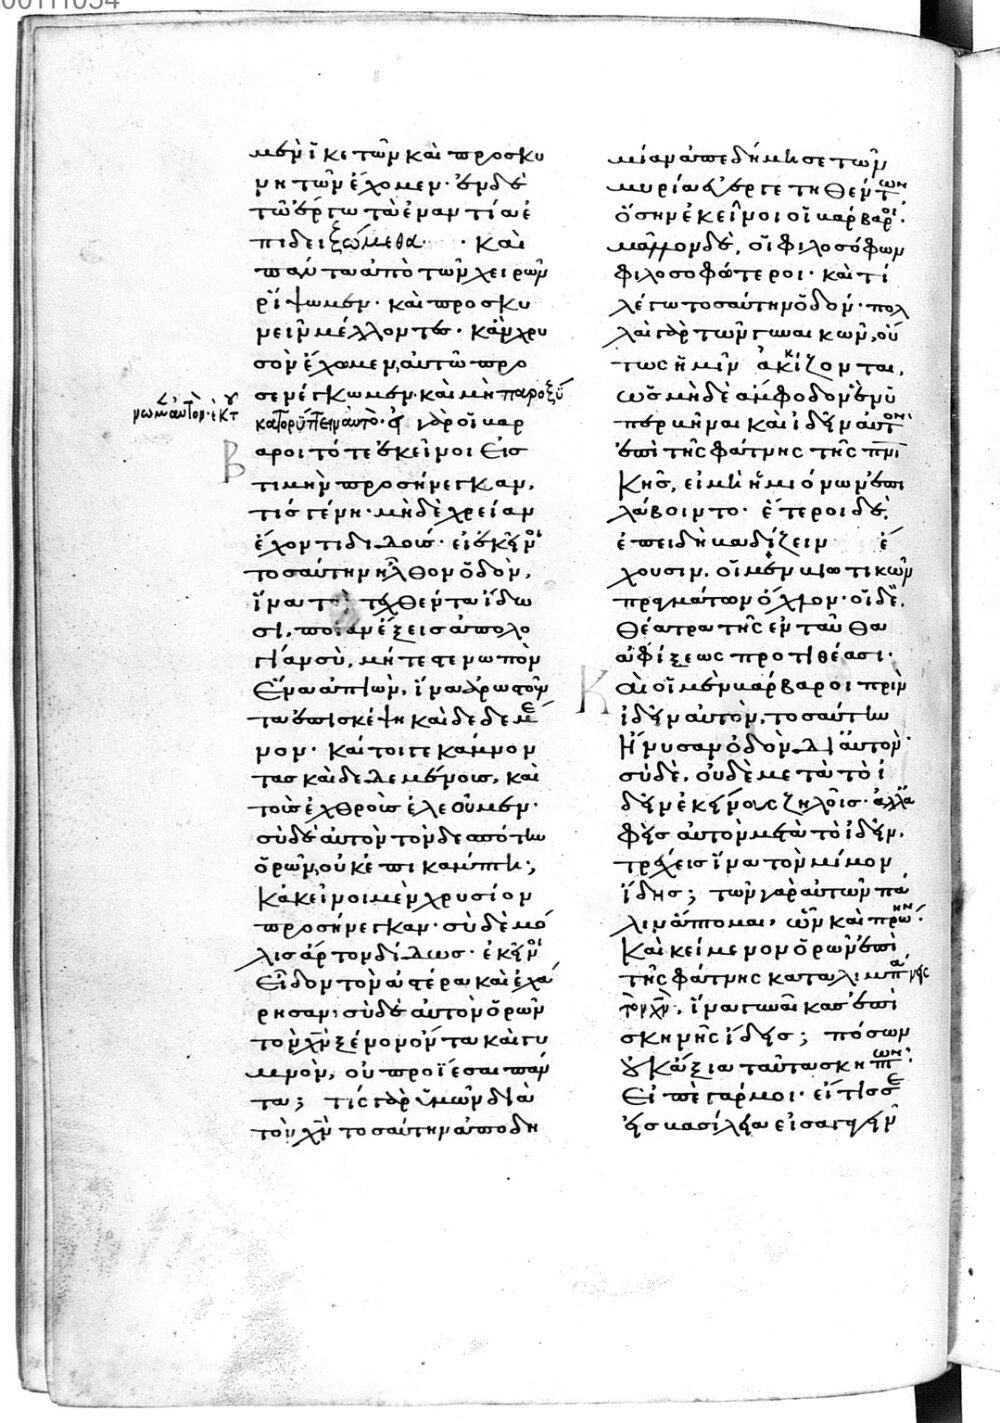 00111054
μὲν ἱκετῶν καὶ προσκυ
νητῶν ἔχομεν· ἐν δὲ
τῷ ἔργῳ τὰ ἐναντία ἐ
πιδειξώμεθα· καὶ
πάντα ἀπὸ τῶν χειρῶν
ῥίψωμεν· καὶ προσκυ
νεῖν μέλλοντες· κἂν χρυ
σὸν ἔχομεν, αὐτῶ προ
σενέγκωμεν· καὶ μὴ παροξύ
κατορύττειν αὐτό· εἰ γὰρ οἱ βάρ
βαροι τότε ἐκεῖνοι εἰς
τιμὴν προσήνεγκαν,
τίς γένῃ· μὴδὲ χρείαν
ἔχοντι διδούς· εἰ ἐκεῖνοι
τοσαύτην ἦλθον ὁδὸν,
ἵνα τεχθέντα ἴδω
σι, ποίαν ἕξεις ἀπολο
γίαν σὺ, μήτε στενωπὸν
ἕνα ἀπιὼν, ἵνα ἀρρωστοῦν
τα ἐπισκέψῃ καὶ δεδεμέ
νον· καίτοιγε κάμνον
τας καὶ δεδεμένους, καὶ
τοὺς ἐχθροὺς ἐλεοῦμεν·
σὺ δὲ αὐτὸν τὸν δεσπότην
ὁρῶν, οὐκ ἐπικάμπτη;
κἀκεῖνοι μὲν χρυσίον
προσήνεγκαν· σὺ δὲ μό
λις ἄρτον δίδως· ἐκεῖνοι
εἶδον τὸν ἀστέρα καὶ ἐχά
ρησαν· σὺ δὲ αὐτὸν ὁρῶν
τὸν χν ξένον ὄντα καὶ γυ
μνὸν, οὐ προΐεσαι πάν
τα; τίς γὰρ ὑμῶν διὰ
τὸν χν τοσαύτην ἀποδη
μίαν ἀπεδήμησε τῶν
μυρία εὐεργετηθέντων,
ὅσην ἐκεῖνοι οἱ βάρβαροι·
μᾶλλον δὲ, οἱ φιλοσόφων
φιλοσοφώτεροι· καὶ τί
λέγω τοσαύτην ὁδόν· πολ
λαὶ γὰρ τῶν γυναικῶν, οὕ
τως ἡμῖν ἀκκίζονται,
ὡς μηδὲ ἄμφοδον ἓν ὑ
περβῆναι καὶ ἰδεῖν αὐτὸν
ἐπὶ τῆς φάτνης τῆς πνι
κῆς, εἰ μὴ ἡμιόνων ἐπι
λάβοιντο· ἕτεροι δὲ,
ἐπειδὴ βαδίζειν ἔ
χουσιν, οἱ μὲν βιωτικῶν
πραγμάτων ὄχλον· οἱ δὲ,
θέατρα τῆς ἐνταῦθα
ἀφίξεως προτιθέασι·
καὶ οἱ μὲν βάρβαροι πρὶν
ἰδεῖν αὐτὸν, τοσαύτην
ἤνυσαν ὁδὸν δι' αὐτόν·
σὺ δὲ, οὐδὲ μετὰ τὸ ἰ
δεῖν ἐκείνους ζηλοῖς· ἀλλὰ
ἀφεὶς αὐτὸν μετὰ τὸ ἰδεῖν,
τρέχεις ἵνα τὸν μῖμον
ἴδῃς; τῶν γὰρ αὐτῶν πά
λιν ἅπτομαι, ὧν καὶ πρώην·
καὶ κείμενον ὁρῶν ἐπὶ
τῆς φάτνης καταλιμπάνεις
τὸν χν, ἵνα γυναῖκας ἐπὶ
σκηνῆς ἴδῃς; πόσων
οὐκ ἄξια ταῦτα σκηπτῶν;
εἰπὲ γάρ μοι· εἴ τις σε
εἰς βασίλεια εἰσαγαγεῖν